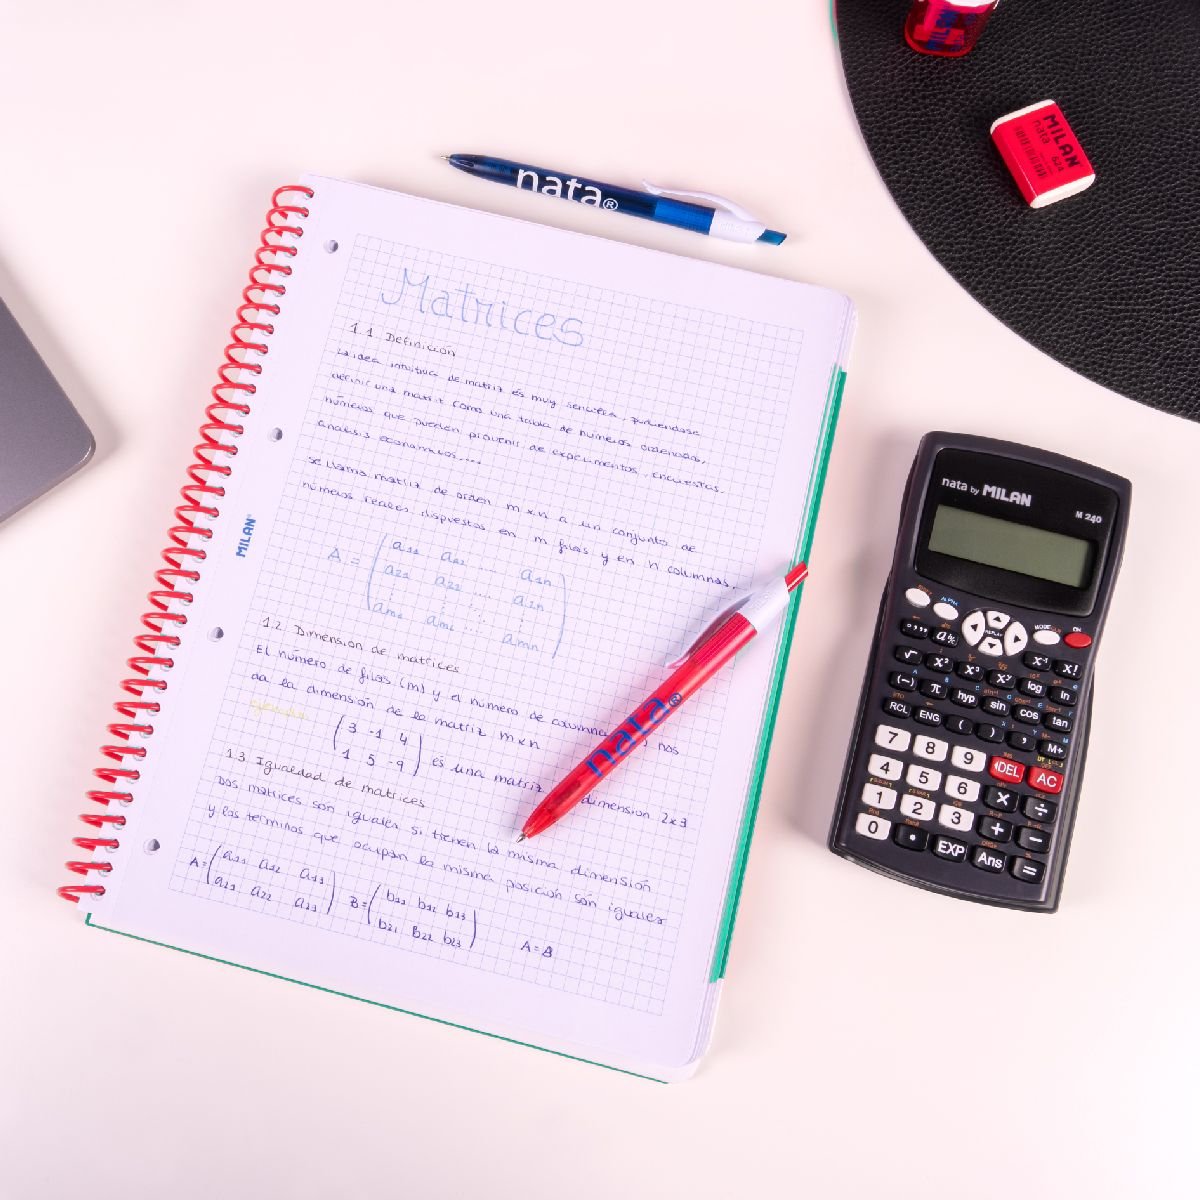 nata®
MILAN
nata
624
Matrices
1.1 Definición
La idea intuitiva de matriz es muy sencilla, pudiéndose
definir una matriz como una tabla de números ordenados,
números que pueden provenir de experimentos, encuestas,
análisis económicos....
se llama matriz de orden m×n a un conjunto de
números reales dispuestos en m filas y en n columnas.
A = ( a11 a12 ... a1n )
a21 a22 ... a2n
am1 am2 ... amn
MILAN®
1.2 Dimension de matrices
El número de filas (m) y el número de columna nos
da la dimensión de la matriz m×n
ejemplo:
( 3 -1 4
1 5 -9 ) es una matriz dimension 2×3
1.3 Igualdad de matrices
Dos matrices son iguales si tienen la misma dimensión
y los términos que ocupan la misma posición son iguales
A = ( a11 a12 a13 B = ( b11 b12 b13
a21 a22 a23 ) b21 B22 b23 ) A = B
nata®
nata by MILAN
M 240
ALPHA
REPLAY
MODE
ON
x-1 x!
√ x² x³ log ln
(−) π hyp sin cos tan
RCL ENG ( ) , M+
7 8 9 DEL AC
4 5 6 × ÷
1 2 3 + −
0 . EXP Ans =